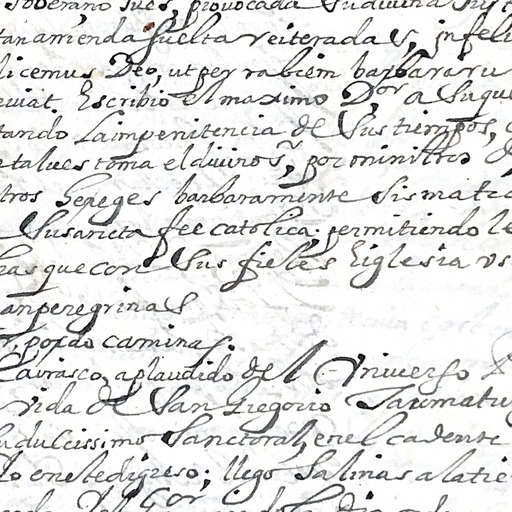 soberano Jues, provocada Sudivina Jus
tan arrienda suelta reiteradas, infeli
licemus Deo, ut per rabiem barbaroru
Escribio el maximo D.or a Sugue
tando Laimpenitencia de Sus tiempos,
talues toma eldivino S.r, por ministros d
tros hereges barbaramente Sismatic
Susancta fee catolica; permitiendo le
has que con Sus fieles Eiglesia us
anperegrinas
por do caminas.
Cairasco, aplaudido del Universo
vida de San Gregorio Taumatu
udulcissimo Sanctoral, enel cadente
lo eneste digreso; llego Salinas alatie